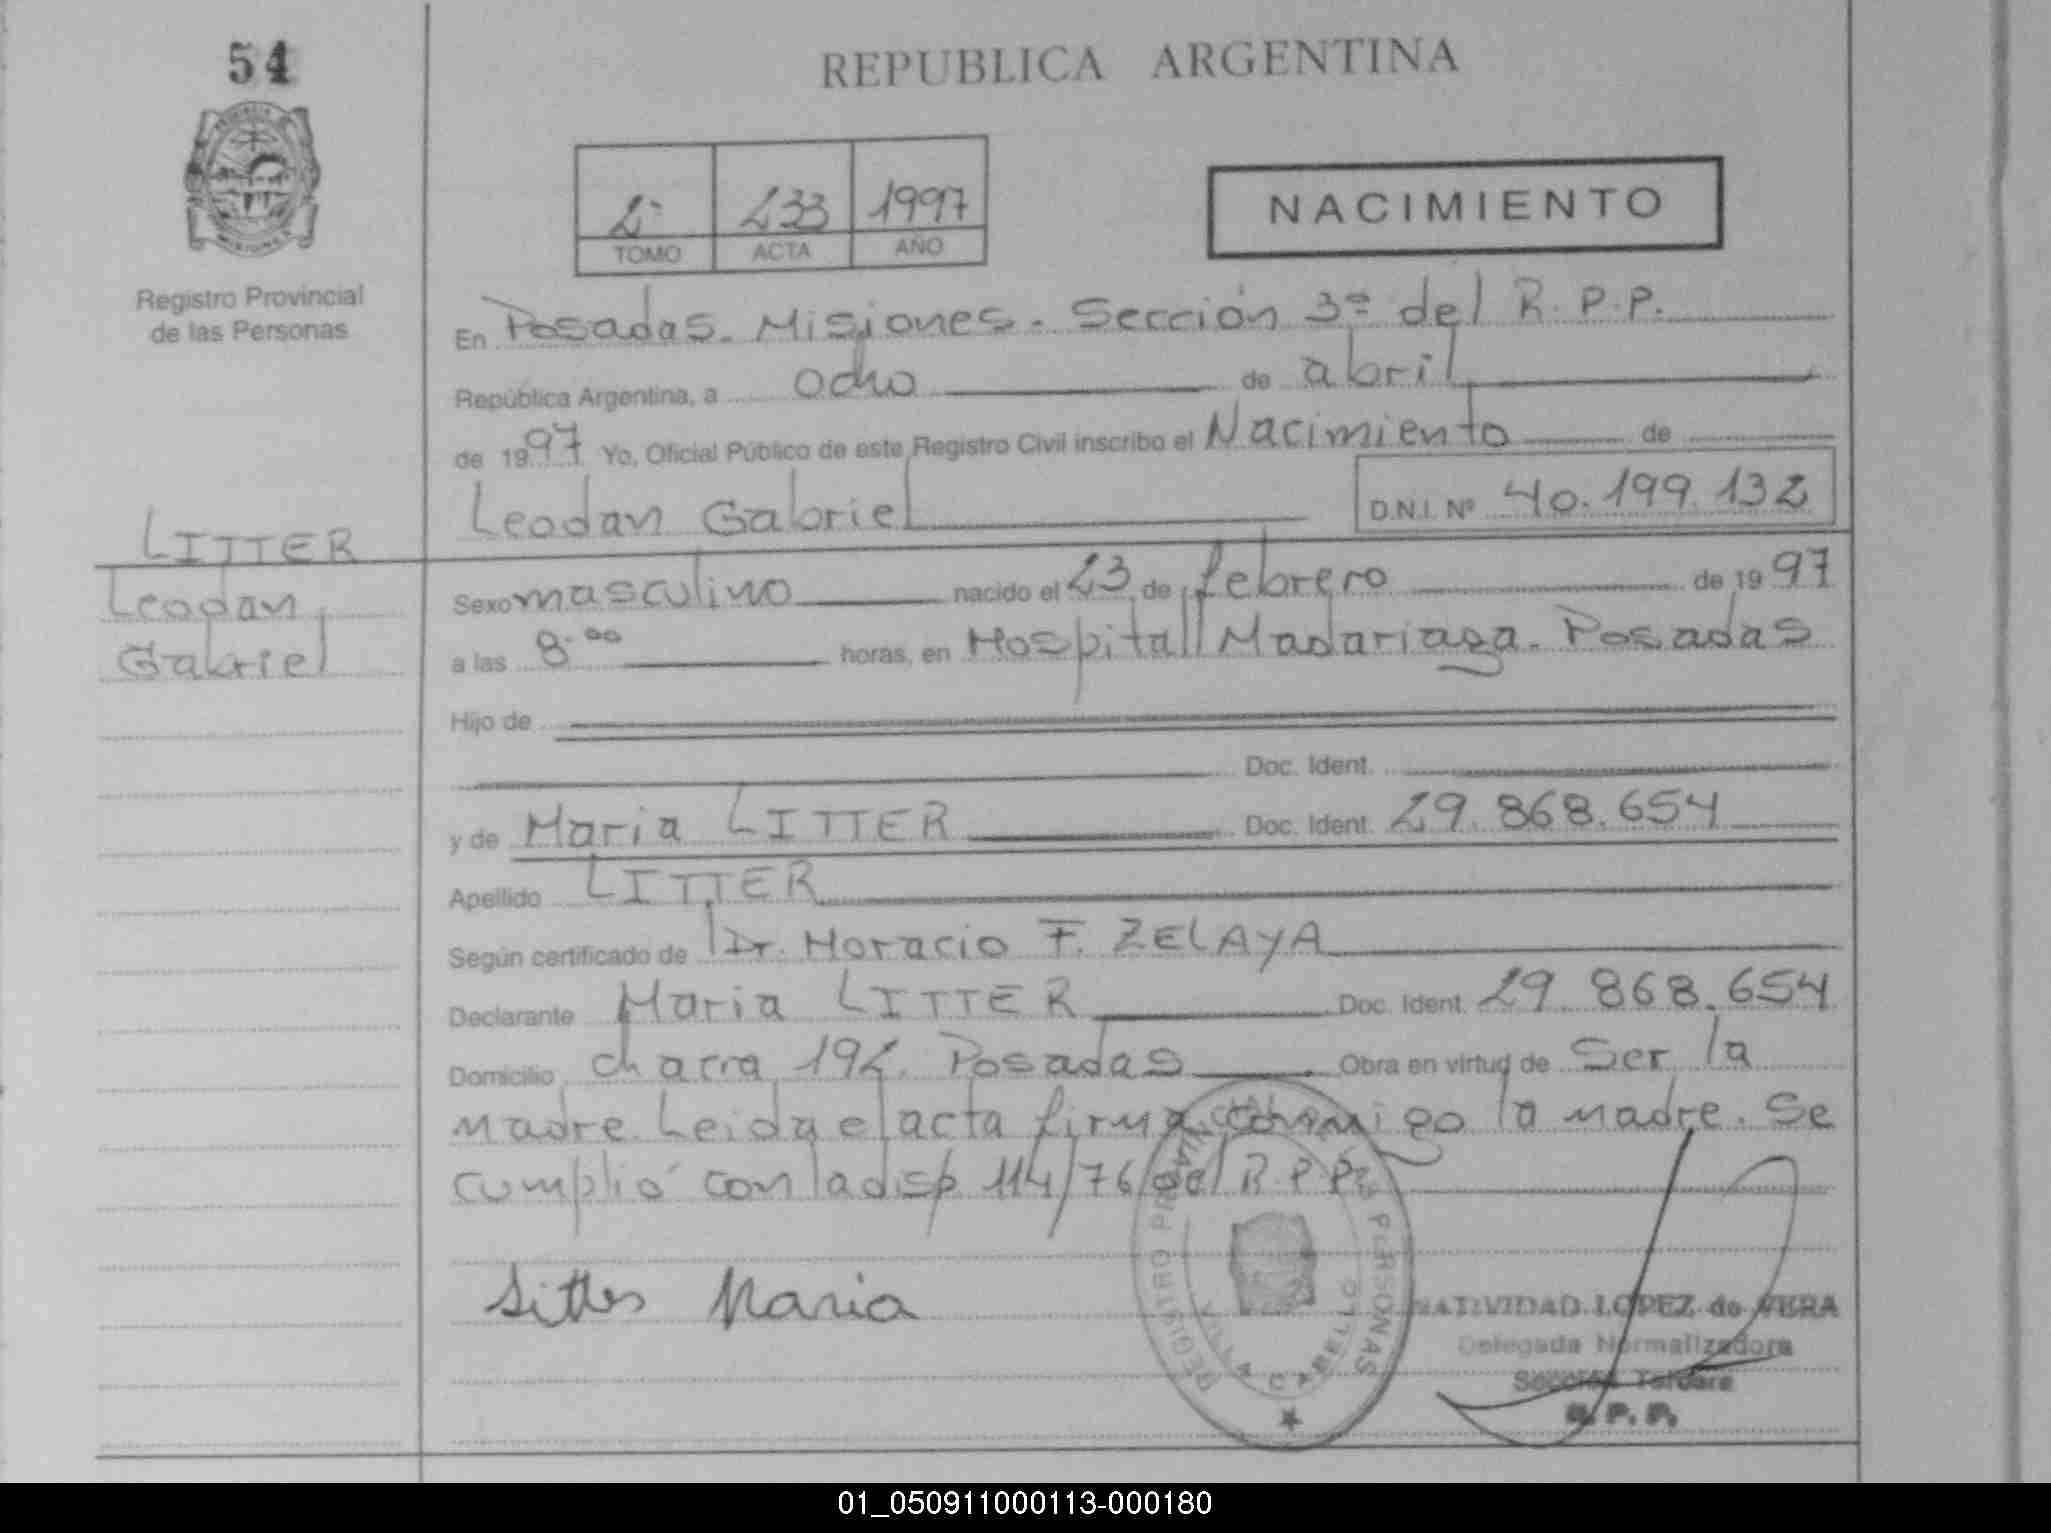 54
REPUBLICA ARGENTINA
2º 233 1997
TOMO ACTA AÑO
NACIMIENTO
Registro Provincial
de las Personas
En Posadas. Misiones. Sección 3ª del R.P.P.
República Argentina, a ocho de abril
de 1997 Yo, Oficial Público de este Registro Civil inscribo el Nacimiento de
Leodan Gabriel D.N.I. Nº 40.199.132
LITTER
Leodan
Gabriel
Sexo masculino nacido el 23 de febrero de 1997
a las 8.00 horas, en Hospital Madariaga. Posadas
Hijo de
Doc. Ident.
y de Maria LITTER Doc. Ident. 29.868.654
Apellido LITTER
Según certificado de Dr. Horacio F. ZELAYA
Declarante Maria LITTER Doc. Ident. 29.868.654
Domicilio chacra 192. Posadas Obra en virtud de Ser la
madre. Leida el acta firma conmigo la madre. Se
cumplió con la disp 114/76 del R.P.P.
Litter Maria
REGISTRO PERSONAS
VILLA CABELLO
NATIVIDAD LOPEZ de VERA
Delegada Normalizadora
Sección Tercera
R.P.P.
01_050911000113-000180